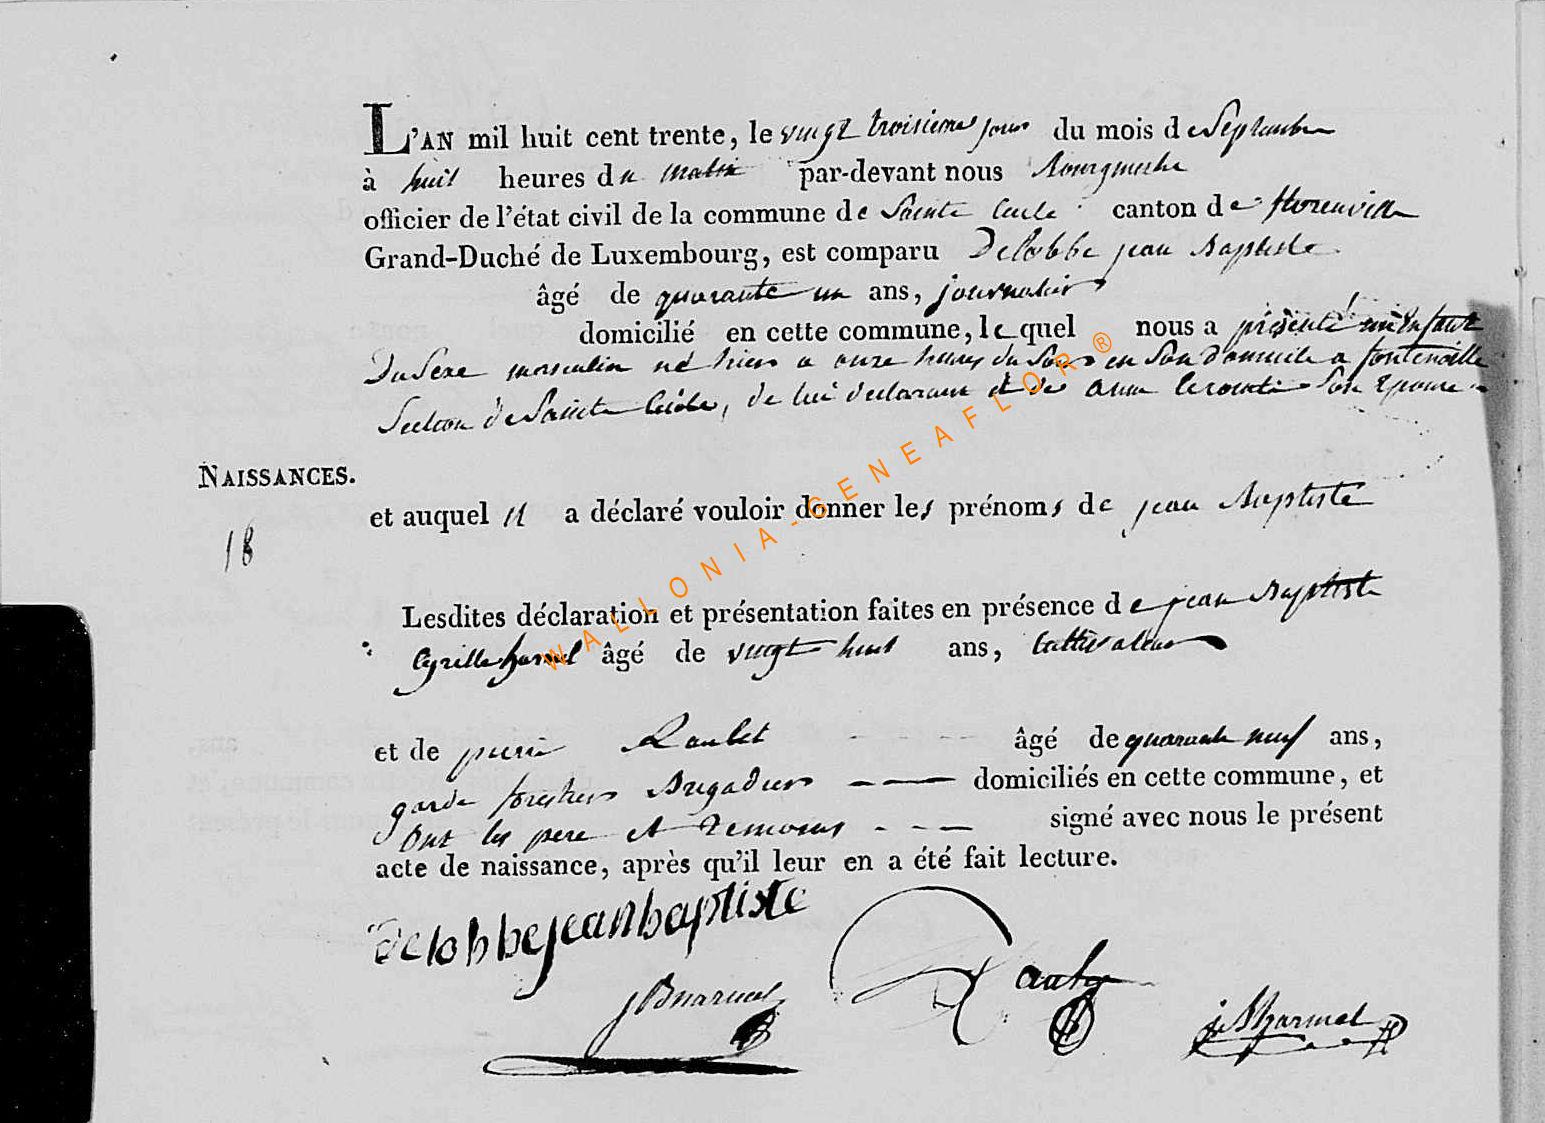 L'AN mil huit cent trente, le vingt troisieme jour du mois de Septembre
à huit heures du matin par-devant nous Bourgmestre
officier de l'état civil de la commune de Sainte Cecile canton de florenville
Grand-Duché de Luxembourg, est comparu Delobbe jean Baptiste
âgé de quarante un ans, journalier
domicilié en cette commune, lequel nous a présenté un Enfant
Du Sexe masculin né hier a onze heures du Soir en Son Domicile a fontenoille
Section de Sainte Cécile, de lui declarant et de anne Son Epouse
NAISSANCES.
et auquel il a déclaré vouloir donner les prénoms de jean Baptiste
18
Lesdites déclaration et présentation faites en présence de jean Baptiste
Cyrille harmel âgé de vingt huit ans, Cultivateur
et de pierre Raulet âgé de quarante neuf ans,
garde forestier Brigadier domiciliés en cette commune, et
Ont les pere et Temoins signé avec nous le présent
acte de naissance, après qu'il leur en a été fait lecture.
Delobbe jean baptiste
jBharmel
WALLONIA-GENEAFLOR®